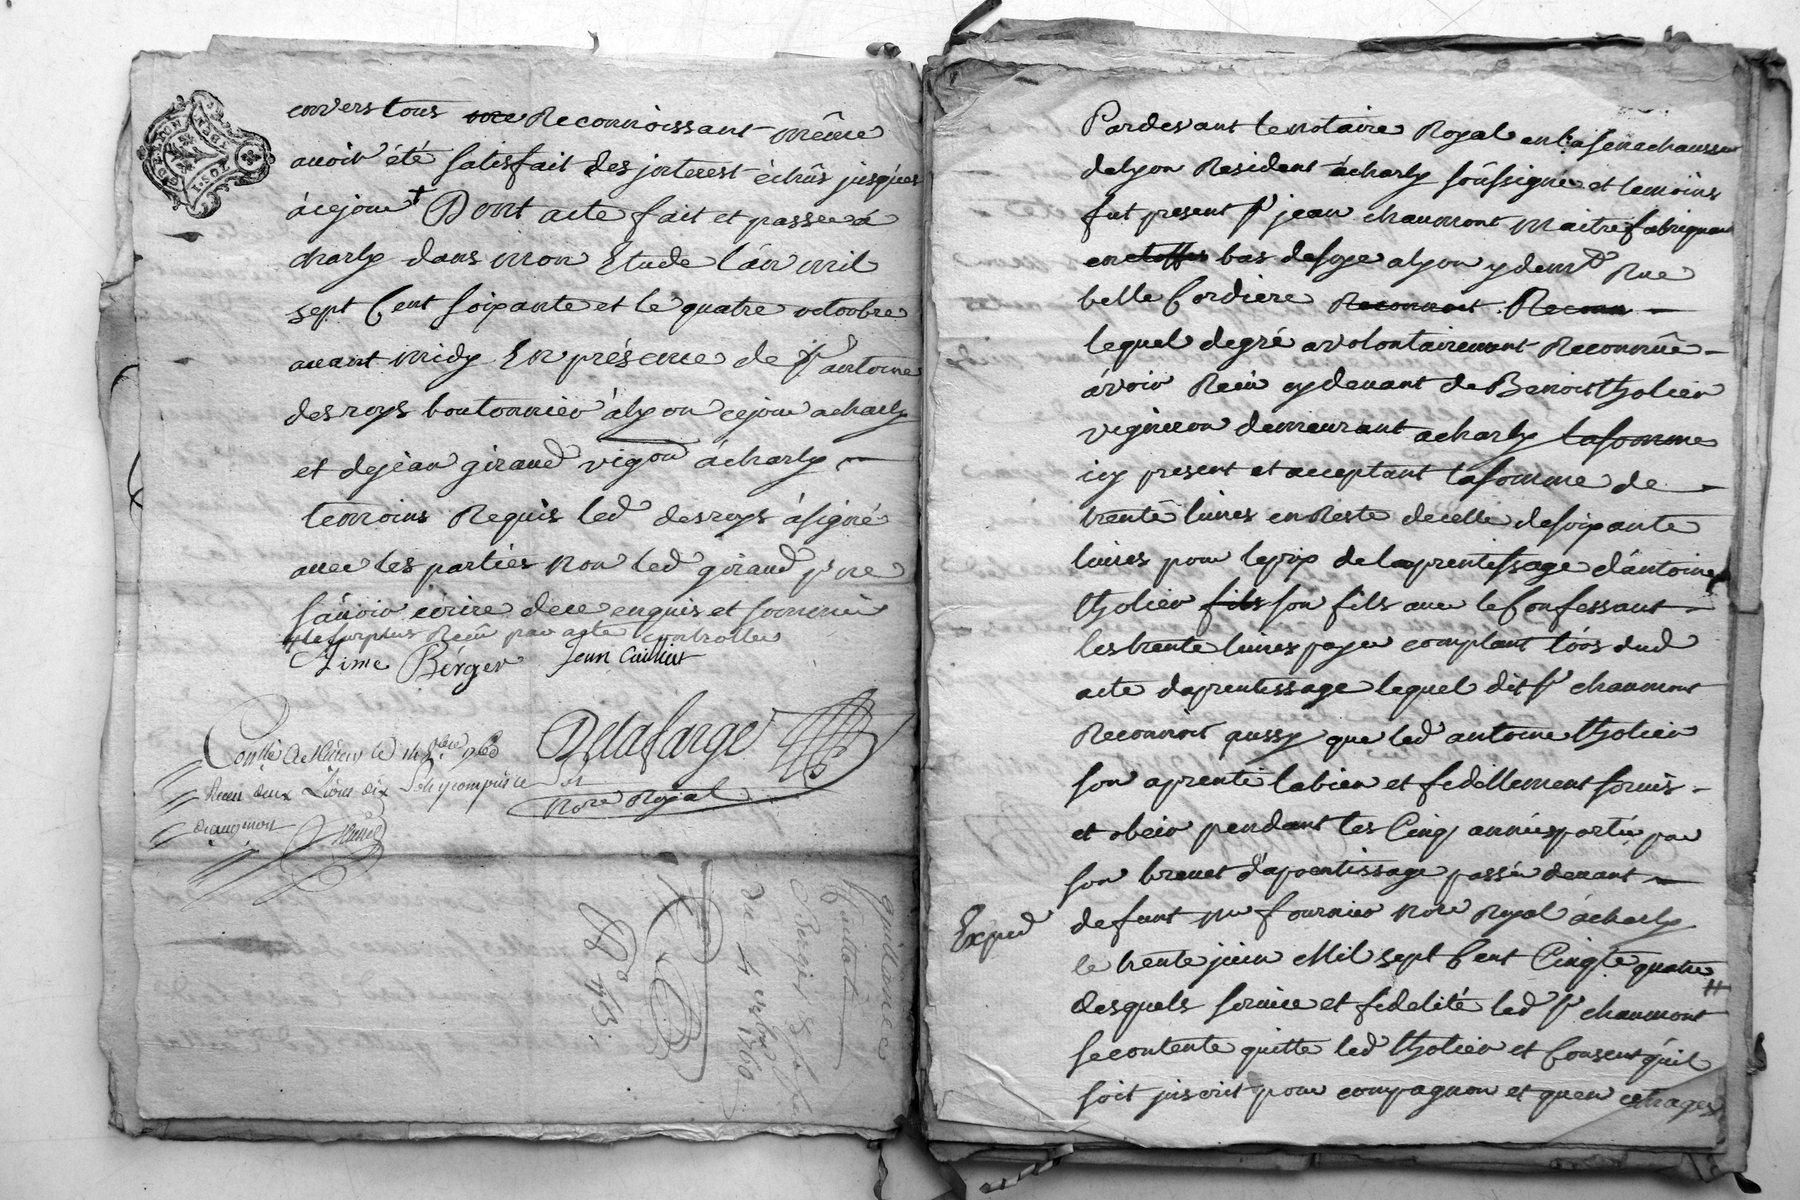 envers tous Reconnoissant même
avoir été satisfait des jnterest échûs jusques
à cejour + Dont acte fait et passée à
charly dans mon Etude l'an mil
sept Cent soixante et le quatre octobre
avant midy En présence de sr antoine
desroys boutonnier à lyon cejour a charly
et de jean giraud vigon à charly
temoins Requis led desroys à signé
avec les parties non led giraud p. ne
sávoir écrire de ce enquis et sommé
+ le surplus Reçu par acte controllée
Aimé Bérger Jean Caillat
Delafarge
nore Royal
Conllé à le 14 8bre 1760
Receu deux Livres dix sols y compris le
quittance
Caillat
Berger
du 4 8bre 1760
Pardevant le notaire Royal en la senechaussée
de lyon Resident à charly soûssigné et temoins
fut present sr jean chaumont maitre fabriquant
en etoffes bas de soye a lyon y demt Rue
belle Cordiere Reconnoit Reconn
lequel de gré a volontairement Reconnûe
ávoir Recu cy devant de Benoit tholier
vigneron demeurant a charly la somme
icy present et acceptant la somme de
trente livres en Reste de celle de soixante
livres pour le prix de laprentissage d'antoine
tholier fils son fils avec le Confessant
les trente livres payée comptant lórs dud
acte daprentissage lequel dit sr chaumont
Reconnoit aussy que led antoine tholier
son aprenti la bien et fidellement servis
et obeir pendant les Cinq années portée par
son brevet d'aprentissage passée devant
defunt me fournier nore Royal à charly
Exped
le trente juin Mil sept Cent Cinqte quatre
desquels service et fidelité led sr chaumont
se contente quitte led tholier et Consent qu'il
soit jnscrit pour compagnon et quen